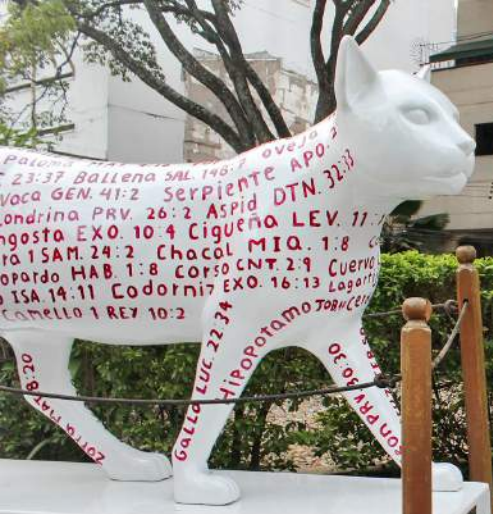 Paloma MAT
oveja
23:37 Ballena SAL. 148:7
APO.
Vaca GEN. 41:2 Serpiente
ondrina PRV. 26:2 Aspid DTN. 32:33
ngosta EXO. 10:4 Cigueña LEV. 11:
ra 1 SAM. 24:2 Chacal MIQ. 1:8
opardo HAB. 1:8 Corso CNT. 2:9 Cuervo
ISA. 14:11 Codorniz EXO. 16:13 Lagart
Camello 1 REY 10:2
Zorra MAT 8:20
Gallo LUC. 22:34
Hipopotamo JOB
Cer
PRV. 30:30